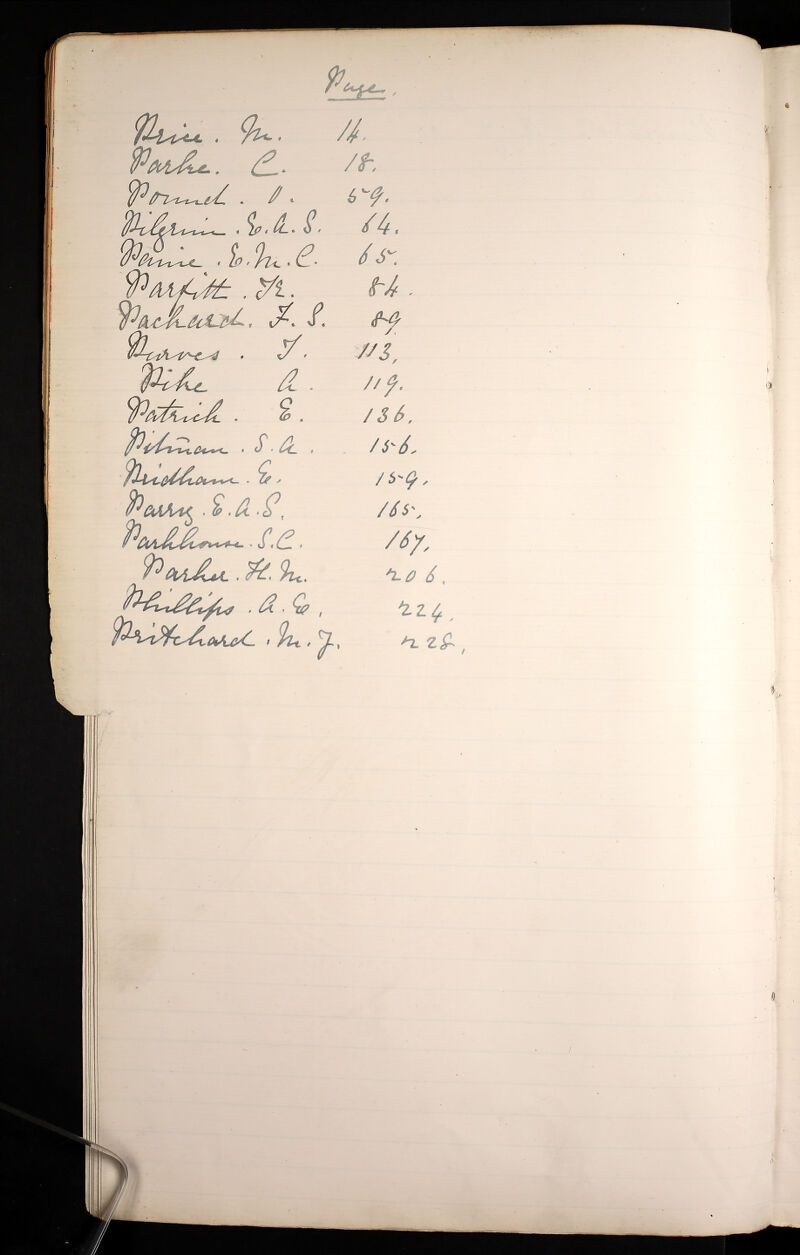 Page.
Price. M. 14.
Parke. C. 18.
Pound. 59.
Pilgrim. E.A.S. 64.
Paine. E.M.C. 65.
Parfitt. K. 84.
Packard. F. S. 89
Purves. J. 113,
Pike A. 119.
Patrick. E. 136.
Pitman. S.A. 156.
Pridham. E. 159.
Parry. E.A.S. 165.
Parkhouse. S.C. 167.
Parker. H. M. 206.
Phillips. A. E. 224.
Pritchard. M. J. 228,